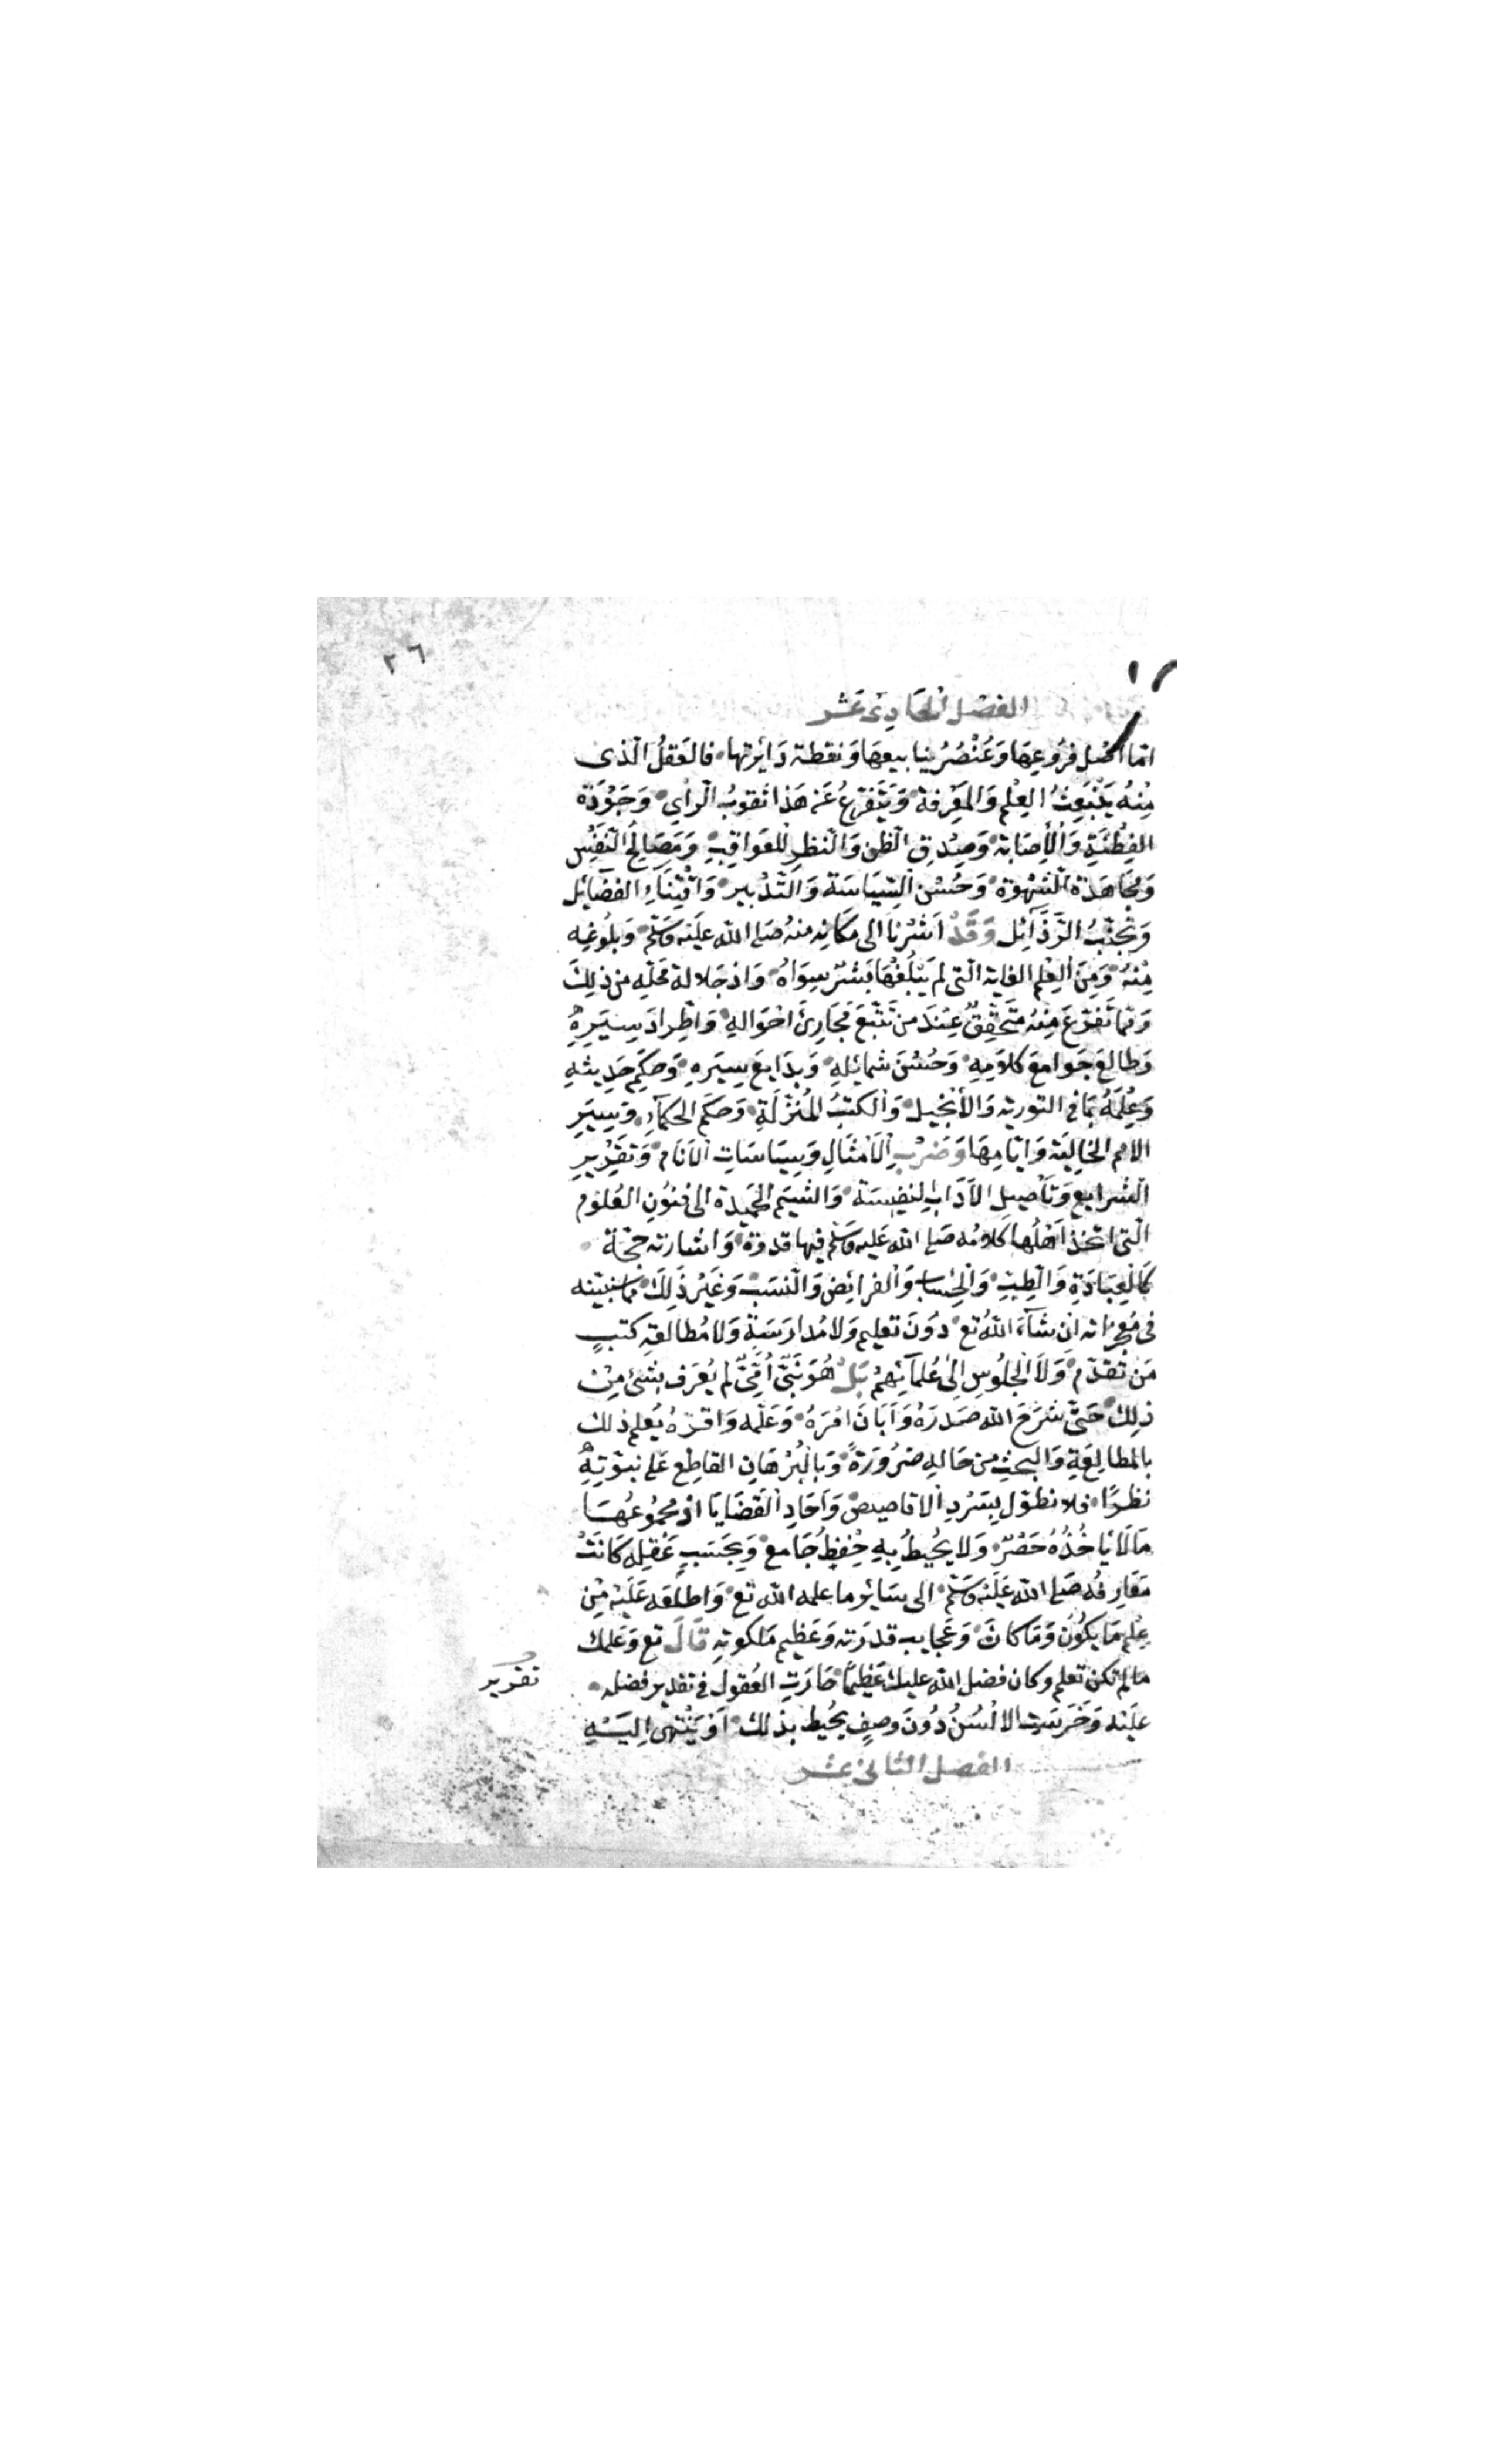 ٢٦
الفصل الحادى عشر
امّا اصل فروعها وعنصر ينابيعها ونقطة دائرتها فالعقل الّذى
منه ينبعث العلم والمعرفة ويتفرّع عن هذا ثقوب الرّأى وجودة
الفطنة والأصابة وصدق الظن والنظر للعواقب ومصالح النّفس
ومجاهدة الشهوة وحسن السّياسة والتّدبير واقتناء الفضائل
وتجنّب الرّذآئل وقد اشرنا الى مكانه منه صلى الله عليه وسلّم وبلوغه
منه ومن العلم الغاية الّتى لم يبلغها بشر سواه واذ جلالة محلّه من ذلك
وممّا تفرّع منه متحقّق عند من تتبّع مجارى احواله واطّراد سيره
وطالع جوامع كلامه وحسن شمائله وبدايع سيره وحكم حديثه
وعلمه بما فى التورية والأنجيل والكتب المنزلة وحكم الحكمآء وسير
الامم الخالية وايّامها وضرب الأمثال وسياسات الأنام وتقرير
الشرايع وتأصيل الآداب النفيسة والشيم الحميدة الى فنون العلوم
الّتى اتخذ اهلها كلامه صلى الله عليه وسلّم فيها قدوة واشارته حجّة
كالعبادة والطبّ والحساب والفرائض والنسب وغير ذلك مما سنبيّنه
فى معجزاته ان شآء الله تع دون تعليم ولا مدارسة ولا مطالعة كتب
من تقدّم ولا الجلوس الى علمآئهم بل هو نبىّ امّىّ لم يعرف بشىء من
ذلك حتّى شرح الله صدره وابان امره وعلّمه واقرأه يعلم ذلك
بالمطالعة والبحث من حاله ضرورة وبالبرهان القاطع على نبوّته
نظرًا فلا نطوّل بسرد الاقاصيص وآحاد القضايا اذ مجموعها
مالا ياخذه حصر ولا يحيط به حفظ جامع وبحسب عقله كانت
معارفه صلى الله عليه وسلّم الى سائر ما علمه الله تع واطلعه عليه من
علم ما يكون وما كان وعجايب قدرته وعظيم ملكوته قال تع وعلمك
مالم تكن تعلم وكان فضل الله عليك عظيمًا حارت العقول فى تقدير فضله
تقرير
عليه وخرست الالسن دون وصف يحيط بذلك او ينتهى اليه
الفصل الثانى عشر